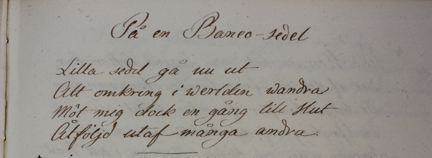 På en Banco-sedel
Lilla sedel gå nu ut
Att omkring i werlden wandra
Möt mig dock en gång till slut
Åtföljd utaf många andra.